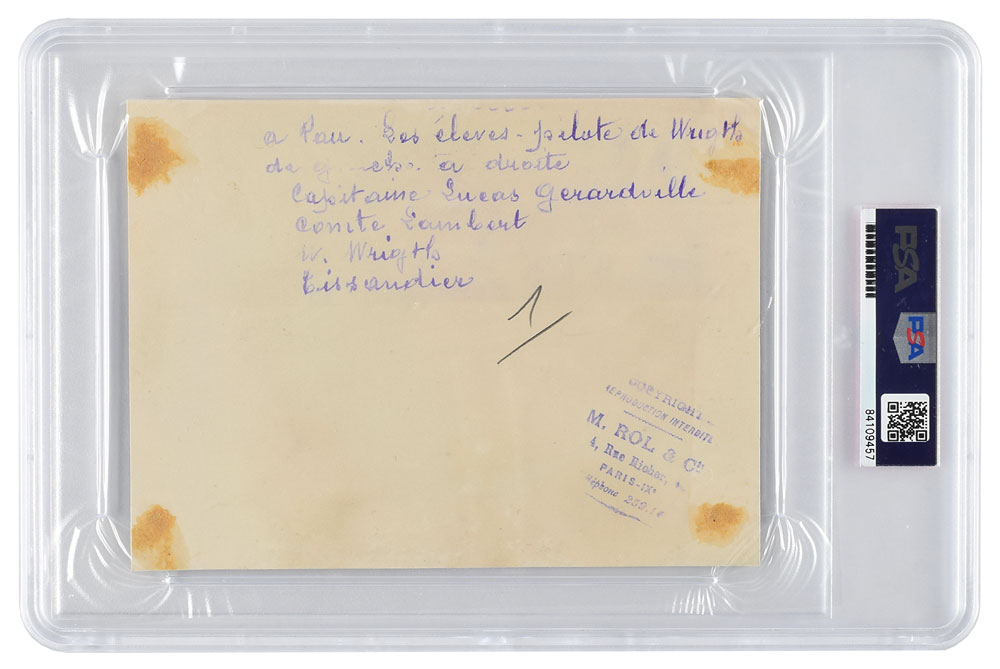 a Pau. Les éleves-pilote de Wrigth
de à droite
Capitaine Lucas Gerardville
Comte Lambert
W. Wrigth
Tissandier
1
COPYRIGHT
REPRODUCTION INTERDITE
M. ROL & Cie
4, Rue Richer, 4
PARIS-IXe
Téléphone 259.14
PSA
PSA
84109457